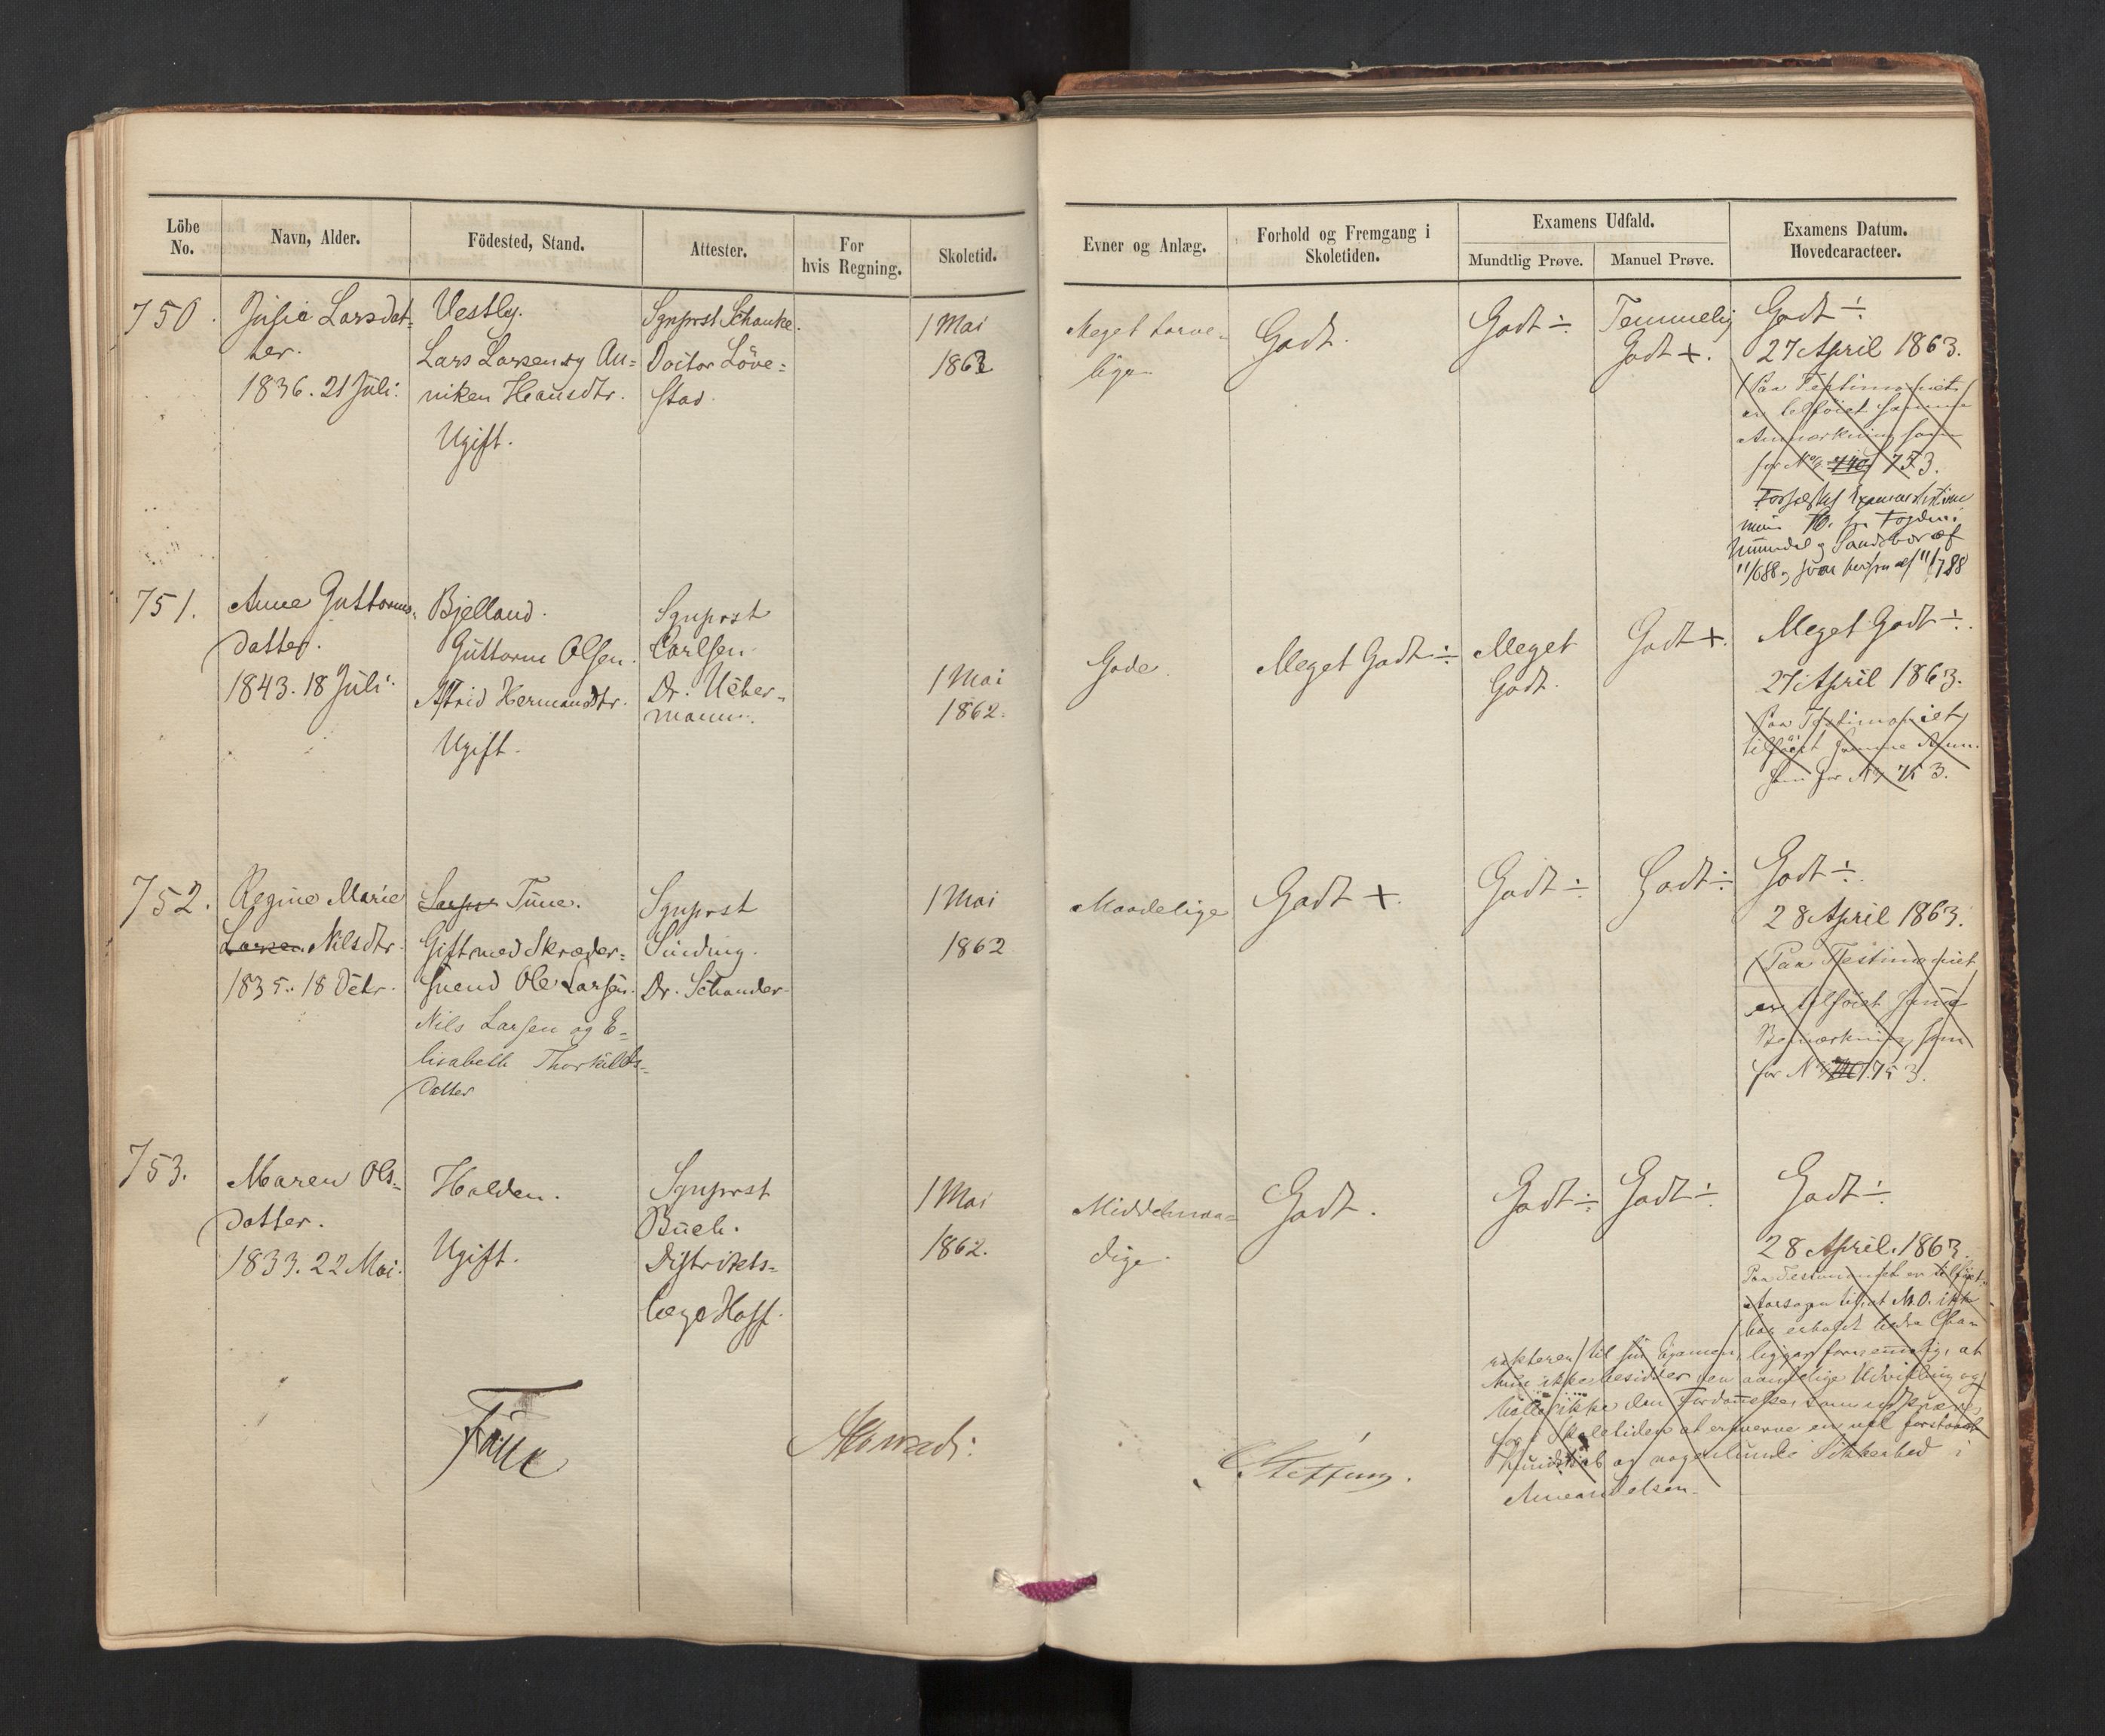 Löbe No.
Navn, Alder.
Födested, Stand.
Attester.
For hvis Regning.
Skoletid.
Evner og Anlæg.
Forhold og Fremgang i Skoletiden.
Examens Udfald.
Mundtlig Prøve.
Manuel Prøve.
Examens Datum. Hovedcaracteer.
750.
Julie Larsdat-
ter.
1836. 21 Juli.
Vestby.
Lars Larsen og An-
niken Hansdtr.
Ugift.
Sgnprst Schanke.
Doctor Löve-
stad.
1 Mai
1862
Meget tarve-
lige
Godt.
Godt ÷
Temmelig
Godt +.
Godt ÷
27 April 1863.
(Paa Testimoniet
er tilföiet samme
Anmærkning som
for No 740 753.
11/6 88 og svar herfra af 11/7 88
751.
Anne Guttorms-
datter.
1843. 18 Juli.
Bjelland.
Guttorm Olsen.
Astrid Hermandtr.
Ugift.
Sgnprst
Carlsen.
Dr. Ucher-
mann.
1 Mai
1862.
Gode.
Meget Godt ÷
Meget
Godt.
Godt +.
Meget Godt ÷.
27 April 1863.
Paa Testimoniet
tilföiet samme Anm.
som for No 753.
752.
Regine Marie
Larsen. Nilsdtr.
1835. 18 Octr.
Tune.
Gift med Skræder-
svend Ole Larsen.
Nils Larsen og E-
lisabeth Thorkilds-
datter
Sgnprst
Sinding.
Dr. Schander
1 Mai
1862
Maadelige
Godt +.
Godt ÷
Godt ÷
Godt ÷.
28 April 1863.
(Paa Testimoniet
er tilföiet samme
Bemærkning som
for No 740. 753.
753.
Maren Ols-
datter.
1833. 22 Mai.
Holden.
Ugift.
Sgnprst
Buch.
Distrikts-
læge Hoff.
1 Mai
1862.
Middelmaa-
dige.
Godt.
Godt ÷
Godt ÷
Godt ÷.
28 April. 1863.
Paa Testimoniet er tilföiet:
Aarsagen til, at M.O. ikke
har erholdt bedre Cha-
rakteren til sin Examen, ligger fornemmelig, at
hun ikke besidder den aandelige Udvikling og
heller ikke den Fordannelse, som udkræves
i Skoletiden at erhverve en vel forstaaet
Kundskab og nogenlunde Sikkerhed i
Anvendelsen.
Faye
Conradi.
Steffens.